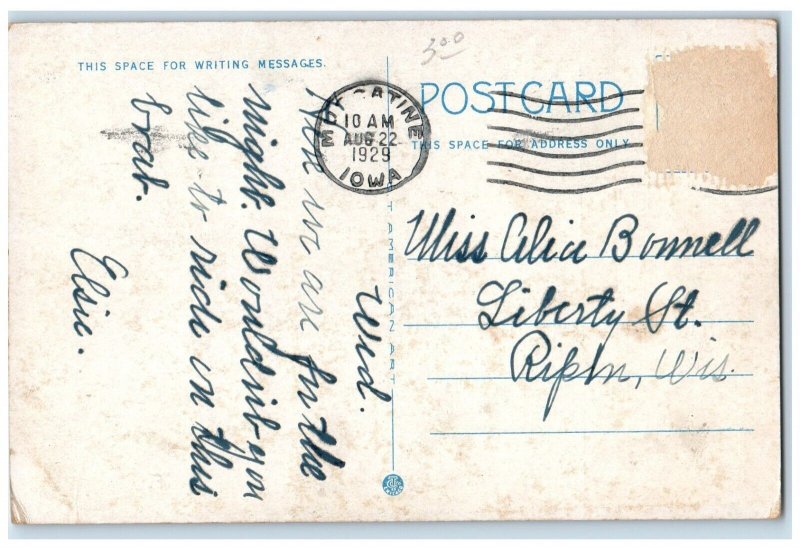 3.00
THIS SPACE FOR WRITING MESSAGES.
POST CARD
THIS SPACE FOR ADDRESS ONLY
MUSCATINE
10 AM
AUG 22
1929
IOWA
Wed.
Here we are for the
night. Wouldn't you
like to ride on this
boat.
Elsie.
Miss Alice Bonnell
Liberty St.
Ripon, Wis.
AMERICAN ART